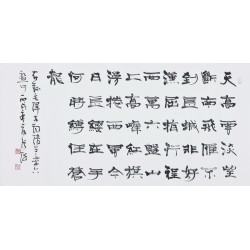 天高雲淡望
斷南飛雁不
到長城非好
漢屈指行程
二萬六盤山
上高峰紅旗
漫捲西風今
日長纓在手
何時縛住蒼
龍